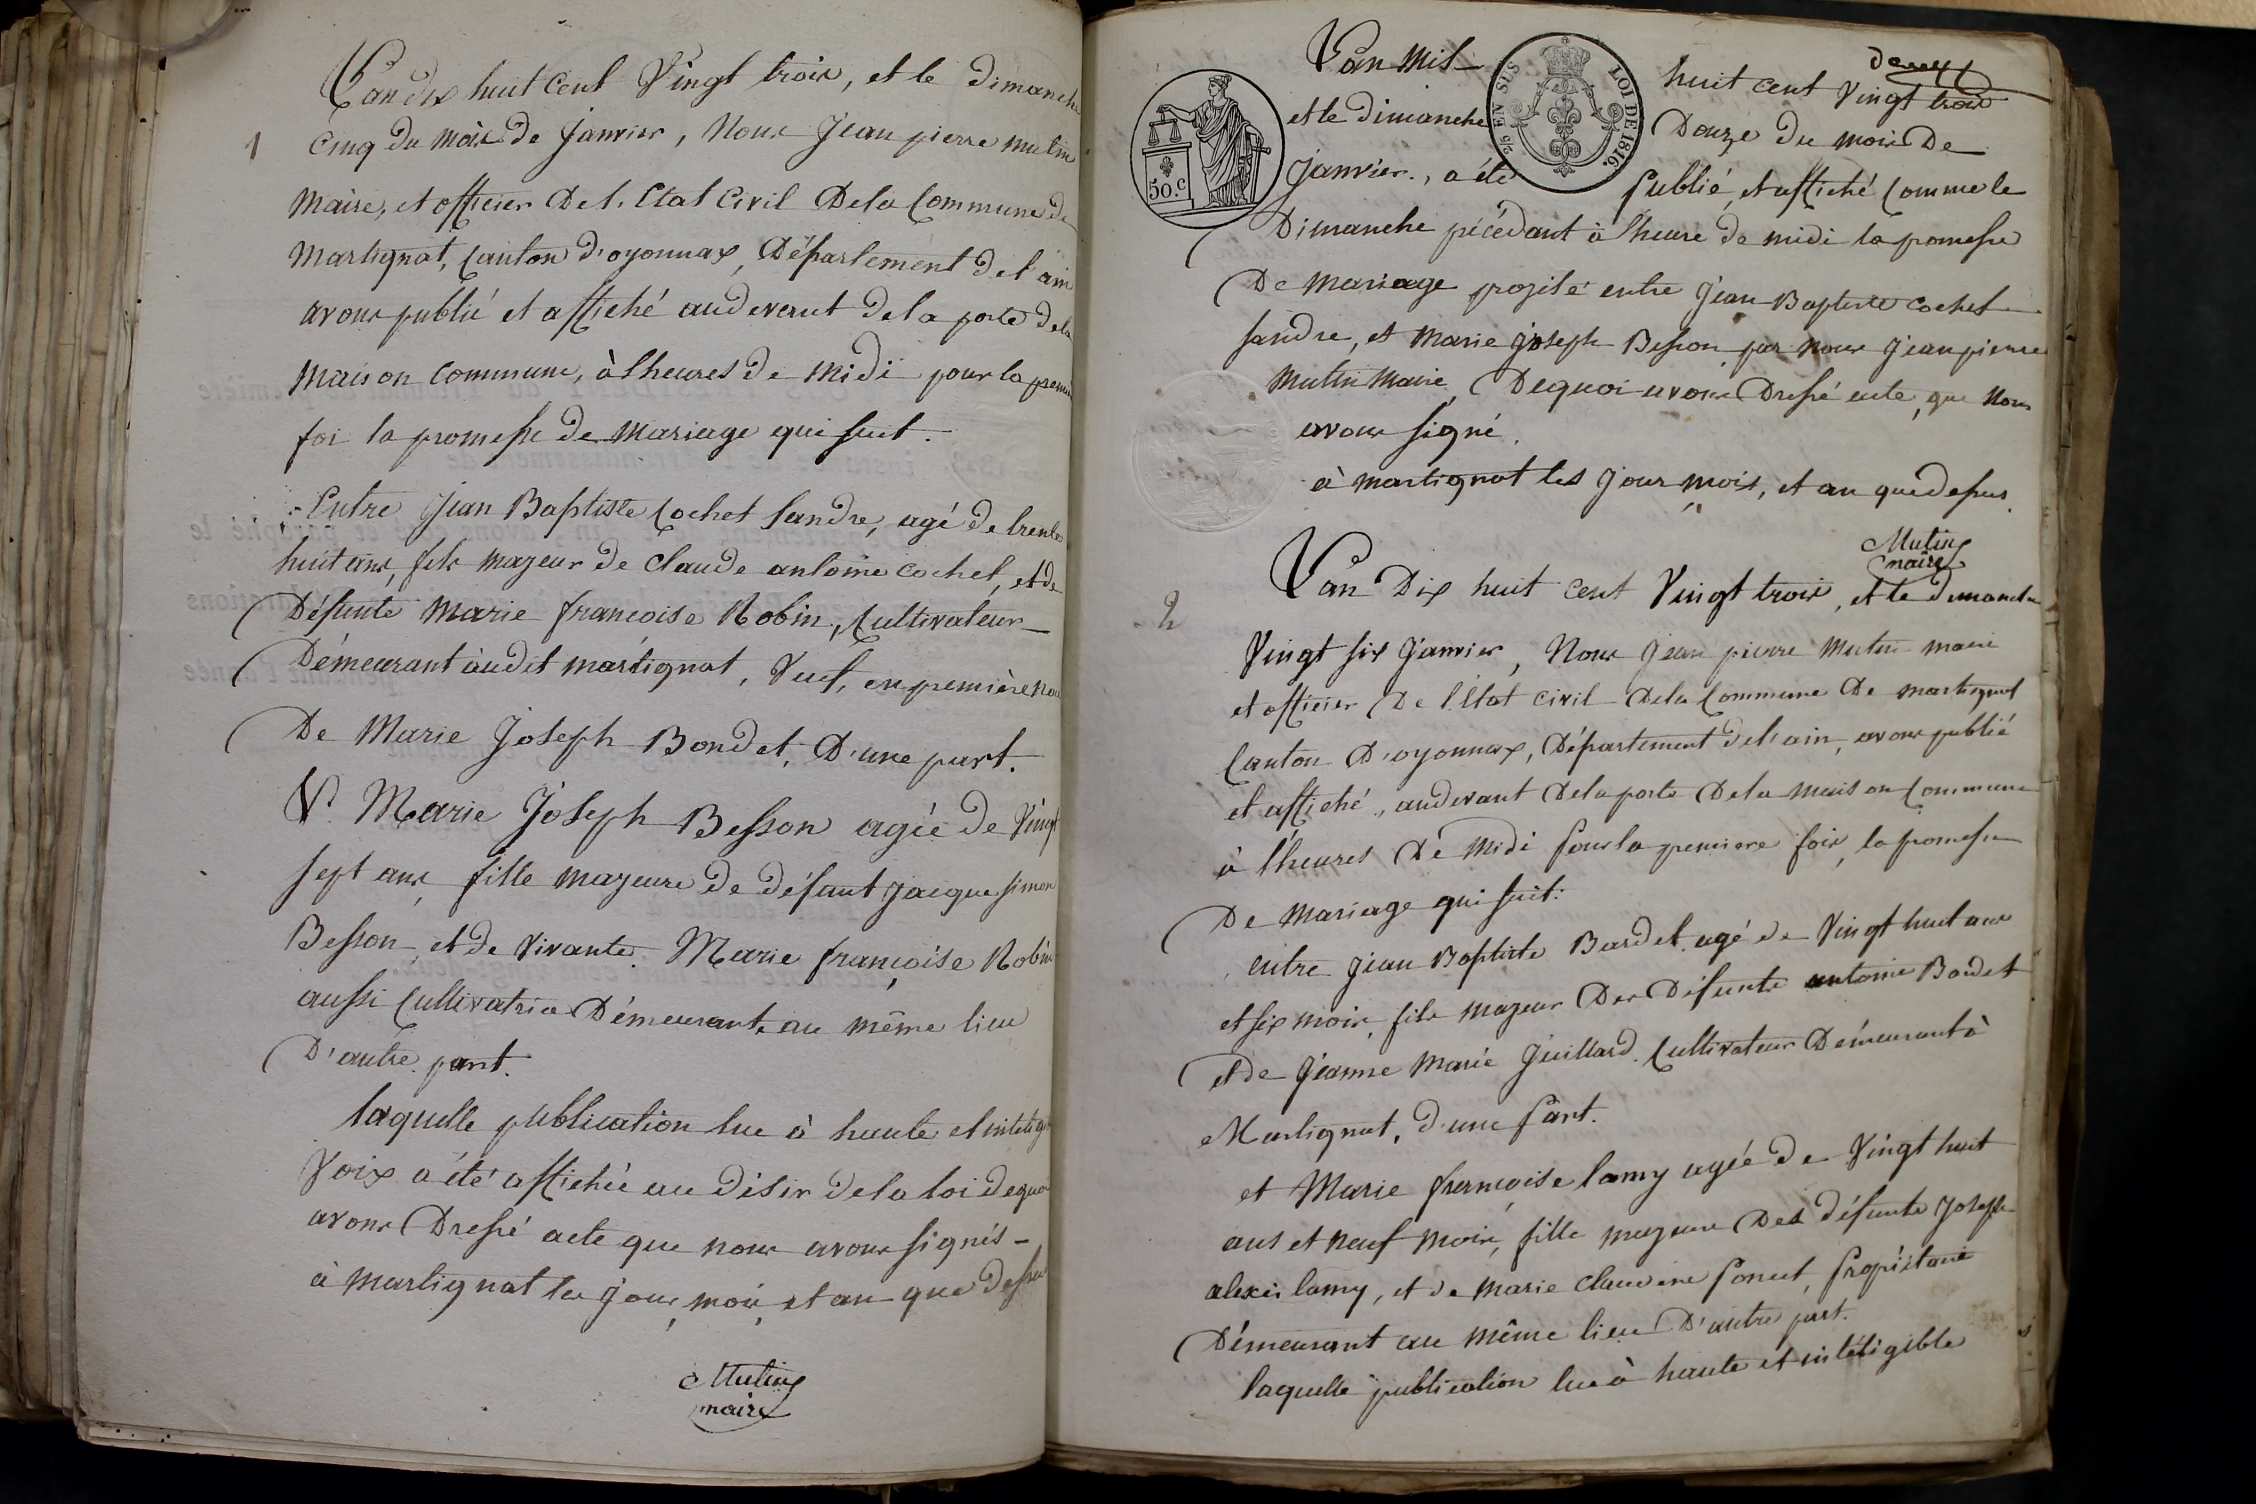 L'an dix huit cent Vingt trois, et le Dimanche
1
Cinq du mois de Janvier, Nous Jean pierre mutin
Maire, et officier De l'Etat Civil Dela Commune de
Martignat, Canton d'oyonnax, Département del'ain
avons publié et affiché audevant dela porte dela
Maison Commune, à lheures de Midi pour la premiere
foi la promesse de Mariage qui suit.
Entre Jean Baptiste Cochet Sandre, agé de trente
huit ans, fils majeur de Claude antoine Cochet, et de
Défunte Marie francoise Robin, Cultivateur
Démeurant audit martignat, Veuf, en première
De Marie Joseph Bondet, D'une part.
Et Marie Joseph Besson agée de Vingt
sept ans, fille majeure de défunt Jacque simon
Besson, et de vivante Marie françoise Robin
aussi Cultivatrice Démeurante au même lieu
D'autre part.
laquelle publication lue à haute et intelligi
Voix a été affichée au désir dela loi dequoi
avons Dressé acte que nous avons signés
à Martignat les Jour, mois, et an que dessus
Mutin
maire
deux
L'an Mil huit cent Vingt trois
et le Dimanche Douze du mois De
Janvier., a été publié, et affiché Comme le
2/5 EN SUS
LOI DE 1816.
50.c
Dimanche précédant à lheure de midi la promesse
De Mariage projeté entre Jean Baptiste Cochet
Sandre, et Marie Joseph Besson par nous Jean pierre
Mutin Maire, Dequoi avons Dressé acte, que Nous
avons signé.
à Martignat les Jour, mois, et an que dessus.
Mutin
maire
2
L'an Dix huit cent Vingt trois, et le dimanche
Vingt six Janvier, Nous Jean pierre Mutin maire
et officier De l'Etat civil Dela Commune De Martignat
Canton D'oyonnax, Département del'ain, avons publié
et affiché, audevant Dela porte Dela Maison Commune
à lheures De Midi pour la premiere fois, la promesse
De Mariage qui suit:
entre Jean Baptiste Bardet agé de Vingt huit ans
et six mois, fils majeur Des Défunts antoine Bardet
et de Jeanne Marie Juillard Cultivateur Démeurant à
Martignat, d'une part.
et Marie françoise lamy agée de Vingt huit
ans et neuf mois, fille majeure Des défunts Joseph
alexis lamy, et de Marie Claudine Poncet, propriétaire
Démeurant au même lieu D'autre part.
laquelle publication lue à haute et intéligible